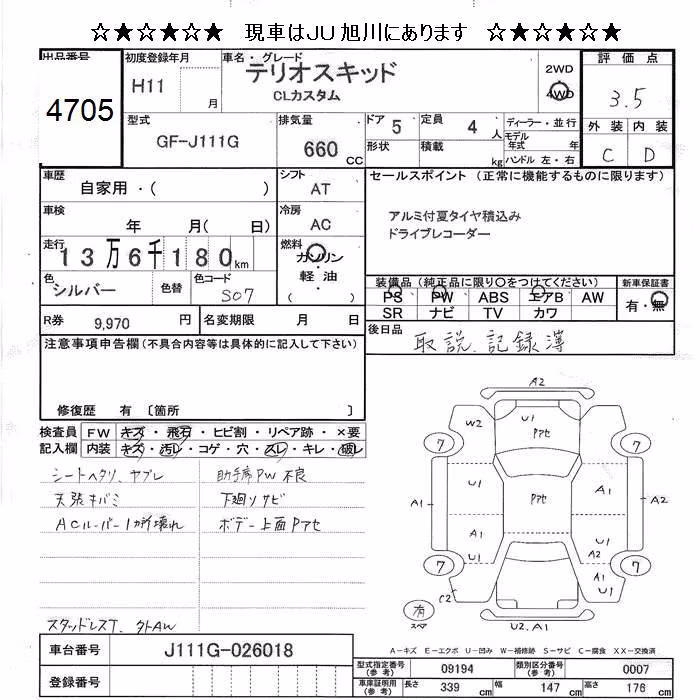 ☆★☆★☆★ 現車はJU旭川にあります ☆★☆★☆★
出品番号 4705
初度登録年月 H11 月
車名・グレード テリオスキッド CLカスタム 2WD 4WD
評価点 3.5
外装 内装
C D
型式 GF-J111G
排気量 660 CC
ドア 5 定員 4 人
形状 積載 kg
ディーラー・並行
モデル年式 年
ハンドル 左・右
車歴 自家用・( )
シフト AT
セールスポイント (正常に機能するものに限ります)
アルミ付夏タイヤ積込み
ドライブレコーダー
車検 年 月( 日)
冷房 AC
走行 13万6千180km
燃料 ガソリン
軽・油
( )
色 シルバー 色替 色コード S07
装備品(純正品に限り○をつけてください) 新車保証書
PS PW ABS エアB AW
SR ナビ TV カワ
有・無
R券 9,970 円 名変期限 月 日
後日品 取説、記録簿
注意事項申告欄(不具合内容等は具体的に記入して下さい)
修復歴 有 〔箇所 〕
検査員 FW キズ・飛石・ヒビ割・リペア跡・×要
記入欄 内装 キズ・汚レ・コゲ・穴・スレ・キレ・破レ
シートヘタリ、ヤブレ 助手席PW不良
天張キバミ 下廻リサビ
ACルーバー1ヶ所壊れ ボデー上面Pアセ
スタッドレスT、外AW
A2
W2 U1 Pアセ
7 7
A1 U1 Pアセ A1 A2
A1 U1
U1 A2
7 7
C2 A1 U1
有 スペア
U2.A1
A-キズ E-エクボ U-凹み W-補修跡 S-サビ C-腐食 XX-交換済
車台番号 J111G-026018
登録番号
型式指定番号(参考) 09194 類別区分番号(参考) 0007
車庫証明用(参考) 長さ 339 cm 幅 147 cm 高さ 176 cm